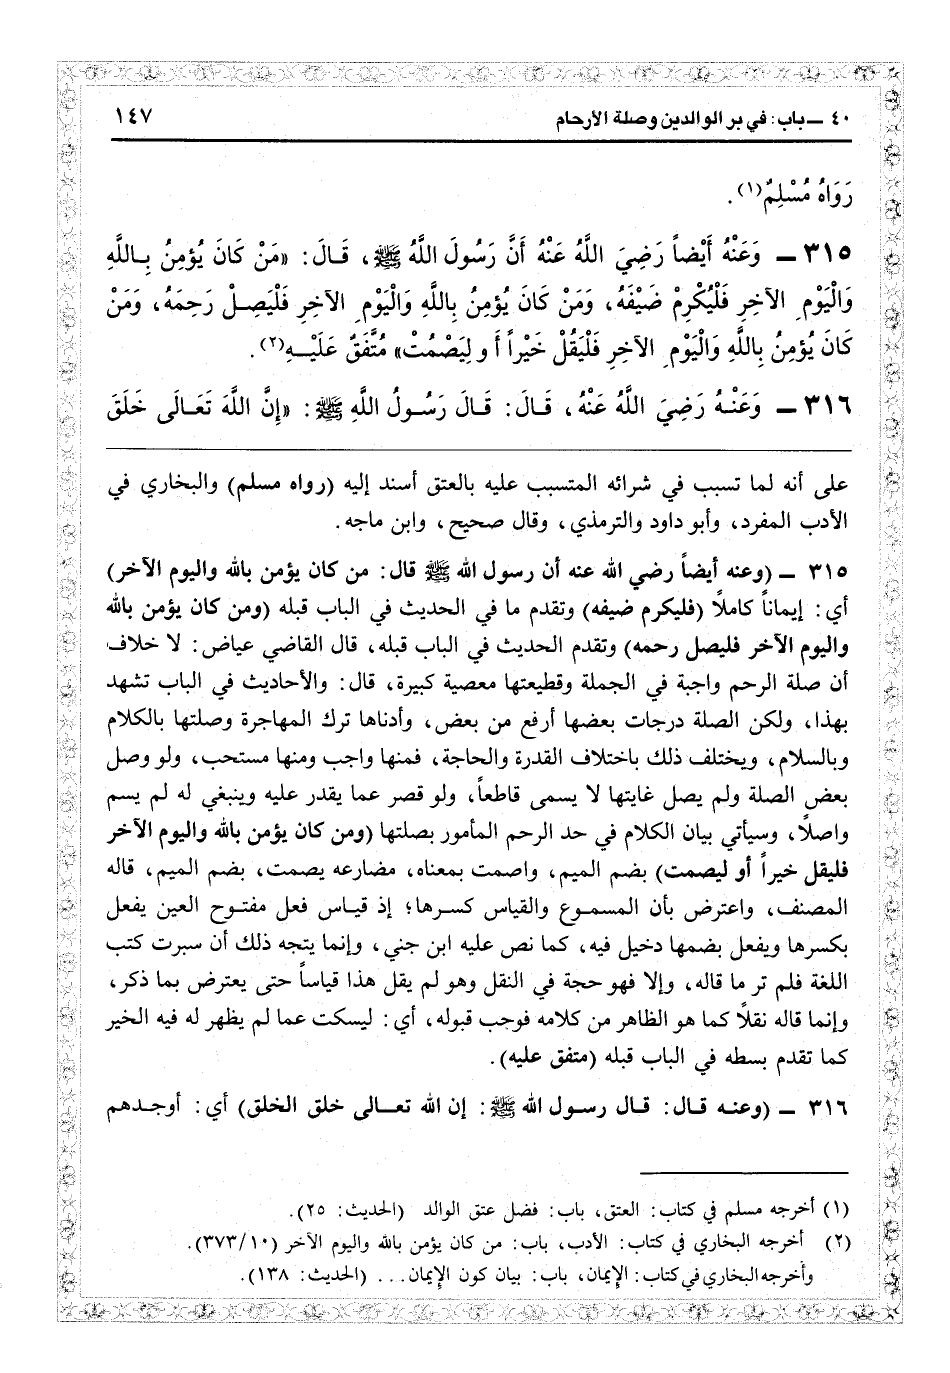 ٤٠ ــ باب: في بر الوالدين وصلة الأرحام ١٤٧
رَوَاهُ مُسْلِمٌ(١).
٣١٥ ــ وَعَنْهُ أَيْضاً رَضِيَ اللَّهُ عَنْهُ أَنَّ رَسُولَ اللَّهُ ﷺ، قَالَ: «مَنْ كَانَ يُؤمِنُ بِاللَّهِ
وَالْيَوْمِ الآخِرِ فَلْيُكْرِمْ ضَيْفَهُ، وَمَنْ كَانَ يُؤمِنُ بِاللَّهِ وَالْيَوْمِ الآخِرِ فَلْيَصِلْ رَحِمَهُ، وَمَنْ
كَانَ يُؤمِنُ بِاللَّهِ وَالْيَوْمِ الآخِرِ فَلْيَقُلْ خَيْراً أَ و لِيَصْمُتْ» مُتَّفَقٌ عَلَيْهِ(٢).
٣١٦ ــ وَعَنْهُ رَضِيَ اللَّهُ عَنْهُ، قَالَ: قَالَ رَسُولُ اللَّهِ ﷺ: «إِنَّ اللَّهَ تَعَالَى خَلَقَ
على أنه لما تسبب في شرائه المتسبب عليه بالعتق أسند إليه (رواه مسلم) والبخاري في
الأدب المفرد، وأبو داود والترمذي، وقال صحيح، وابن ماجه.
٣١٥ ــ (وعنه أيضاً رضي الله عنه أن رسول الله ﷺ قال: من كان يؤمن بالله واليوم الآخر)
أي: إيماناً كاملاً (فليكرم ضيفه) وتقدم ما في الحديث في الباب قبله (ومن كان يؤمن بالله
واليوم الآخر فليصل رحمه) وتقدم الحديث في الباب قبله، قال القاضي عياض: لا خلاف
أن صلة الرحم واجبة في الجملة وقطيعتها معصية كبيرة، قال: والأحاديث في الباب تشهد
بهذا، ولكن الصلة درجات بعضها أرفع من بعض، وأدناها ترك المهاجرة وصلتها بالكلام
وبالسلام، ويختلف ذلك باختلاف القدرة والحاجة، فمنها واجب ومنها مستحب، ولو وصل
بعض الصلة ولم يصل غايتها لا يسمى قاطعاً، ولو قصر عما يقدر عليه وينبغي له لم يسم
واصلاً، وسيأتي بيان الكلام في حد الرحم المأمور بصلتها (ومن كان يؤمن بالله واليوم الآخر
فليقل خيراً أو ليصمت) بضم الميم، واصمت بمعناه، مضارعه يصمت، بضم الميم، قاله
المصنف، واعترض بأن المسموع والقياس كسرها؛ إذ قياس فعل مفتوح العين يفعل
بكسرها ويفعل بضمها دخيل فيه، كما نص عليه ابن جني، وإنما يتجه ذلك أن سبرت كتب
اللغة فلم تر ما قاله، وإلا فهو حجة في النقل وهو لم يقل هذا قياساً حتى يعترض بما ذكر،
وإنما قاله نقلاً كما هو الظاهر من كلامه فوجب قبوله، أي: ليسكت عما لم يظهر له فيه الخير
كما تقدم بسطه في الباب قبله (متفق عليه).
٣١٦ ــ (وعنه قال: قال رسول الله ﷺ: إن الله تعالى خلق الخلق) أي: أوجدهم
(١) أخرجه مسلم في كتاب: العتق، باب: فضل عتق الوالد (الحديث: ٢٥).
(٢) أخرجه البخاري في كتاب: الأدب، باب: من كان يؤمن بالله واليوم الآخر (٣٧٣/١٠).
وأخرجه البخاري في كتاب: الإيمان، باب: بيان كون الإيمان... (الحديث: ١٣٨).